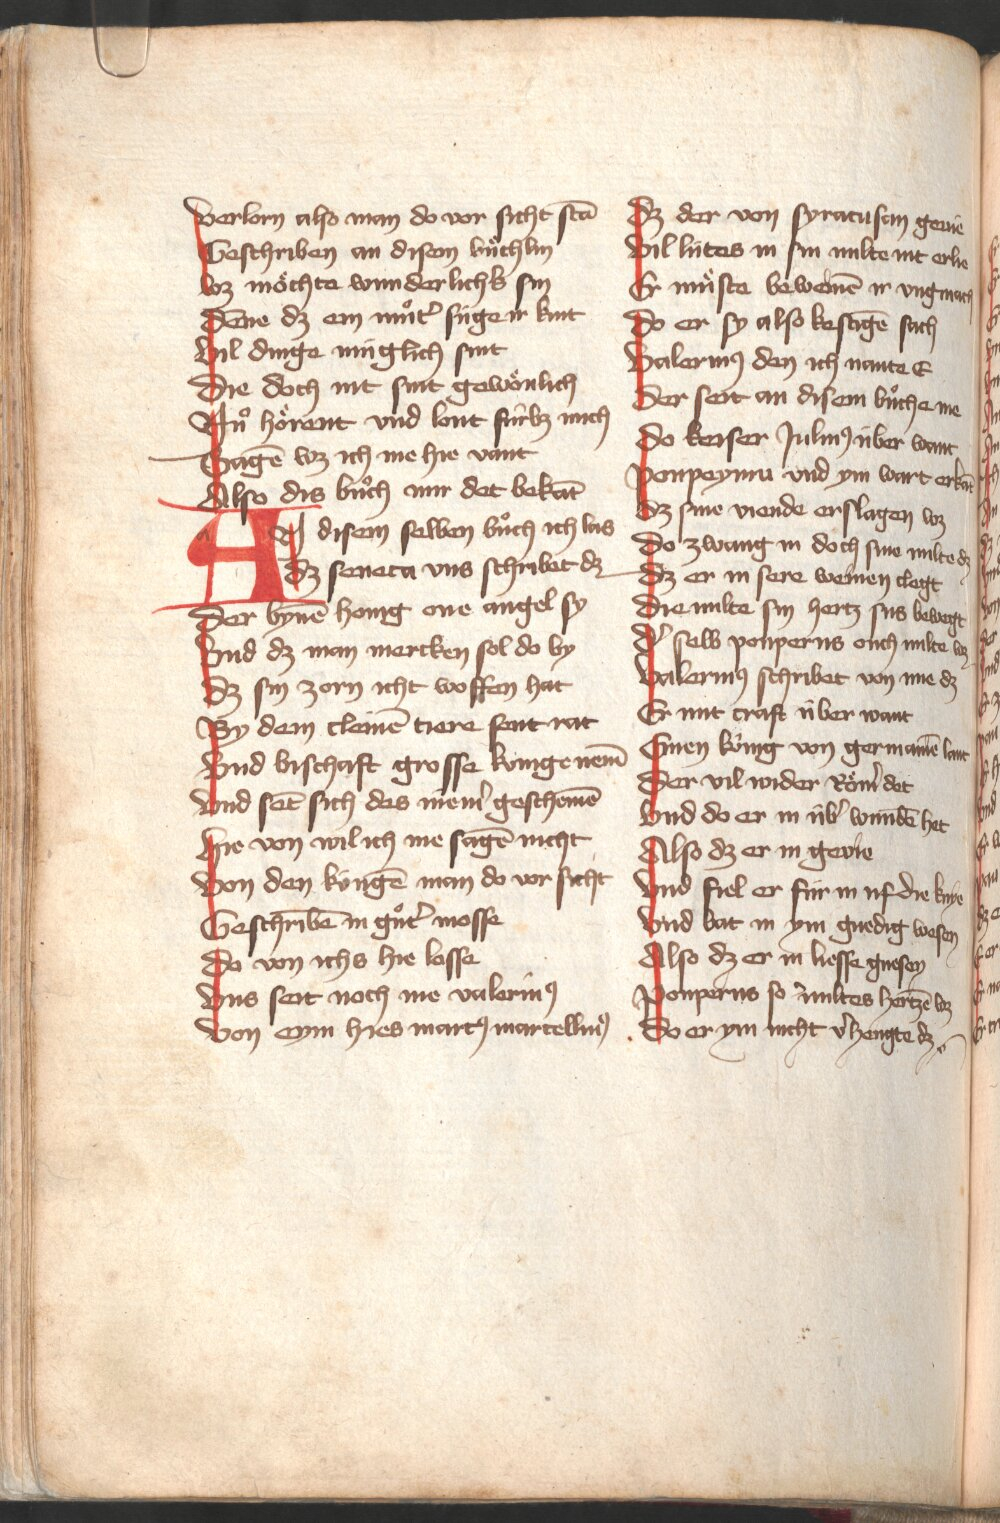 Verlorn also man do vor sicht stā
Geschriben an disem bůchlin
wz möchte wunderlichs sin
Dēne dz ein můtʼ süge ir kint
Vil dinge müglich sint
Die doch nit sint gewönlich
Nů hörent vnd lont fürbz mich
Sagē wz ich me hie vant
Also dis bůch mir det bekāt
AN disem selben bůch ich las
dz seneca vns schribet dz
Der bynē honig one angel sy
Vnd dz man mercken sol do by
Dz sin zorn icht woffen hat
By dem cleinē tiere sent rat
Vnd bischaft grosse künge nemē
Vnd sēt sich des niemʼ geschemē
Hie von wil ich me sagē nicht
Von den küngē man do vor sicht
Geschribē in gůtʼ mosse
Do von ichs hie losse
Vns seit noch me valeriuꝰ
Von eym hies marcꝰ marcelluꝰ
Dz der von syracusan gevie
Vil lütes in sin milte nit erlie
Er můste beweinē ir vngmach
Do er sy also bestāgē sach
Valeriuꝰ den ich nante E
Der seit an disem bůche me
Do keiser Juliuꝰ über want
Ponpeyum vnd ym wart erkāt
Dz sine viende erslagen wz
Do zwang in doch sine milte dz
Dz er in sere weinen clegt
Die milte sin hertz sus bewegt
Dʼ selb ponpeius ouch milte wz
Valeriuꝰ schribet von ime dz
Er mit craft über want
Einen künig von germaniē lant
Der vil wider Römʼ det
Vnd do er in übʼ wundē het
Also dz er in gevie
Vnd fiel er für in uf die knye
Vnd bat in ym gnedig wesen
Also dz er in liesse gnesen
Ponpeius so miltes hertzē wz
Do er ym nicht vʼhengte dz